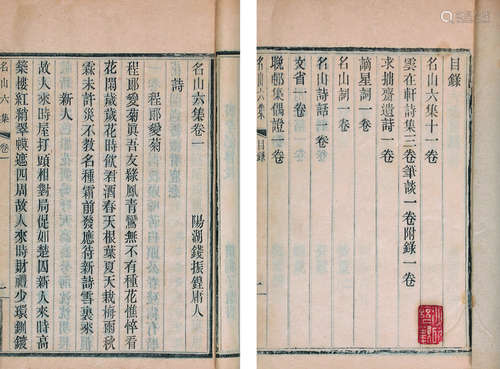 目錄
名山六集十一卷
雲在軒詩集三卷筆談一卷附錄一卷
求拙齋遺詩一卷
謫星詞一卷
名山詞一卷
名山詩話一卷
文省一卷
名山六集
目錄
名山六集卷一
陽湖錢振鍠庸人
詩
程耶愛菊
程耶愛菊眞吾友綠鳳青鸞無不有種花憔悴看
花閒歲歲花時飲君酒春天根葉夏天栽梅雨秋
霖未許災不教名種霜前發應待新詩雪裏來
新人
故人來時屋打頭相對局促如楚囚新人來時高
築樓紅綃翠幙遮四周故人來時財禮少環釧鍍
名山六集
卷一
一